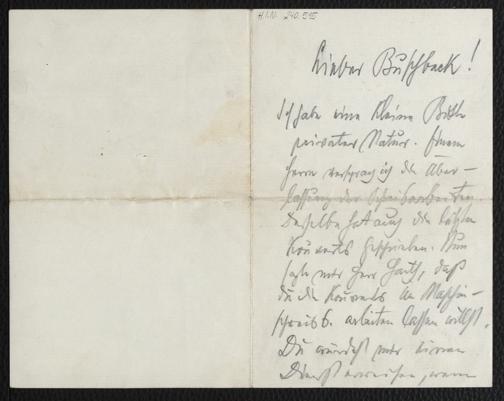 H.I.N. 240.515
Lieber Buschbeck!
Ich habe eine kleine Bitte
privater Natur. Einem
Herrn versprach ich die Über-
lassung der Schreibarbeiten
Derselbe hat auch die letzten
Kouverts geschrieben. Nun
sagte mir Herr, daß
du die Kouverts an Maschin-
schreib b. arbeiten lassen willst.
Du würdest mir einen
Dienst erweisen, wenn